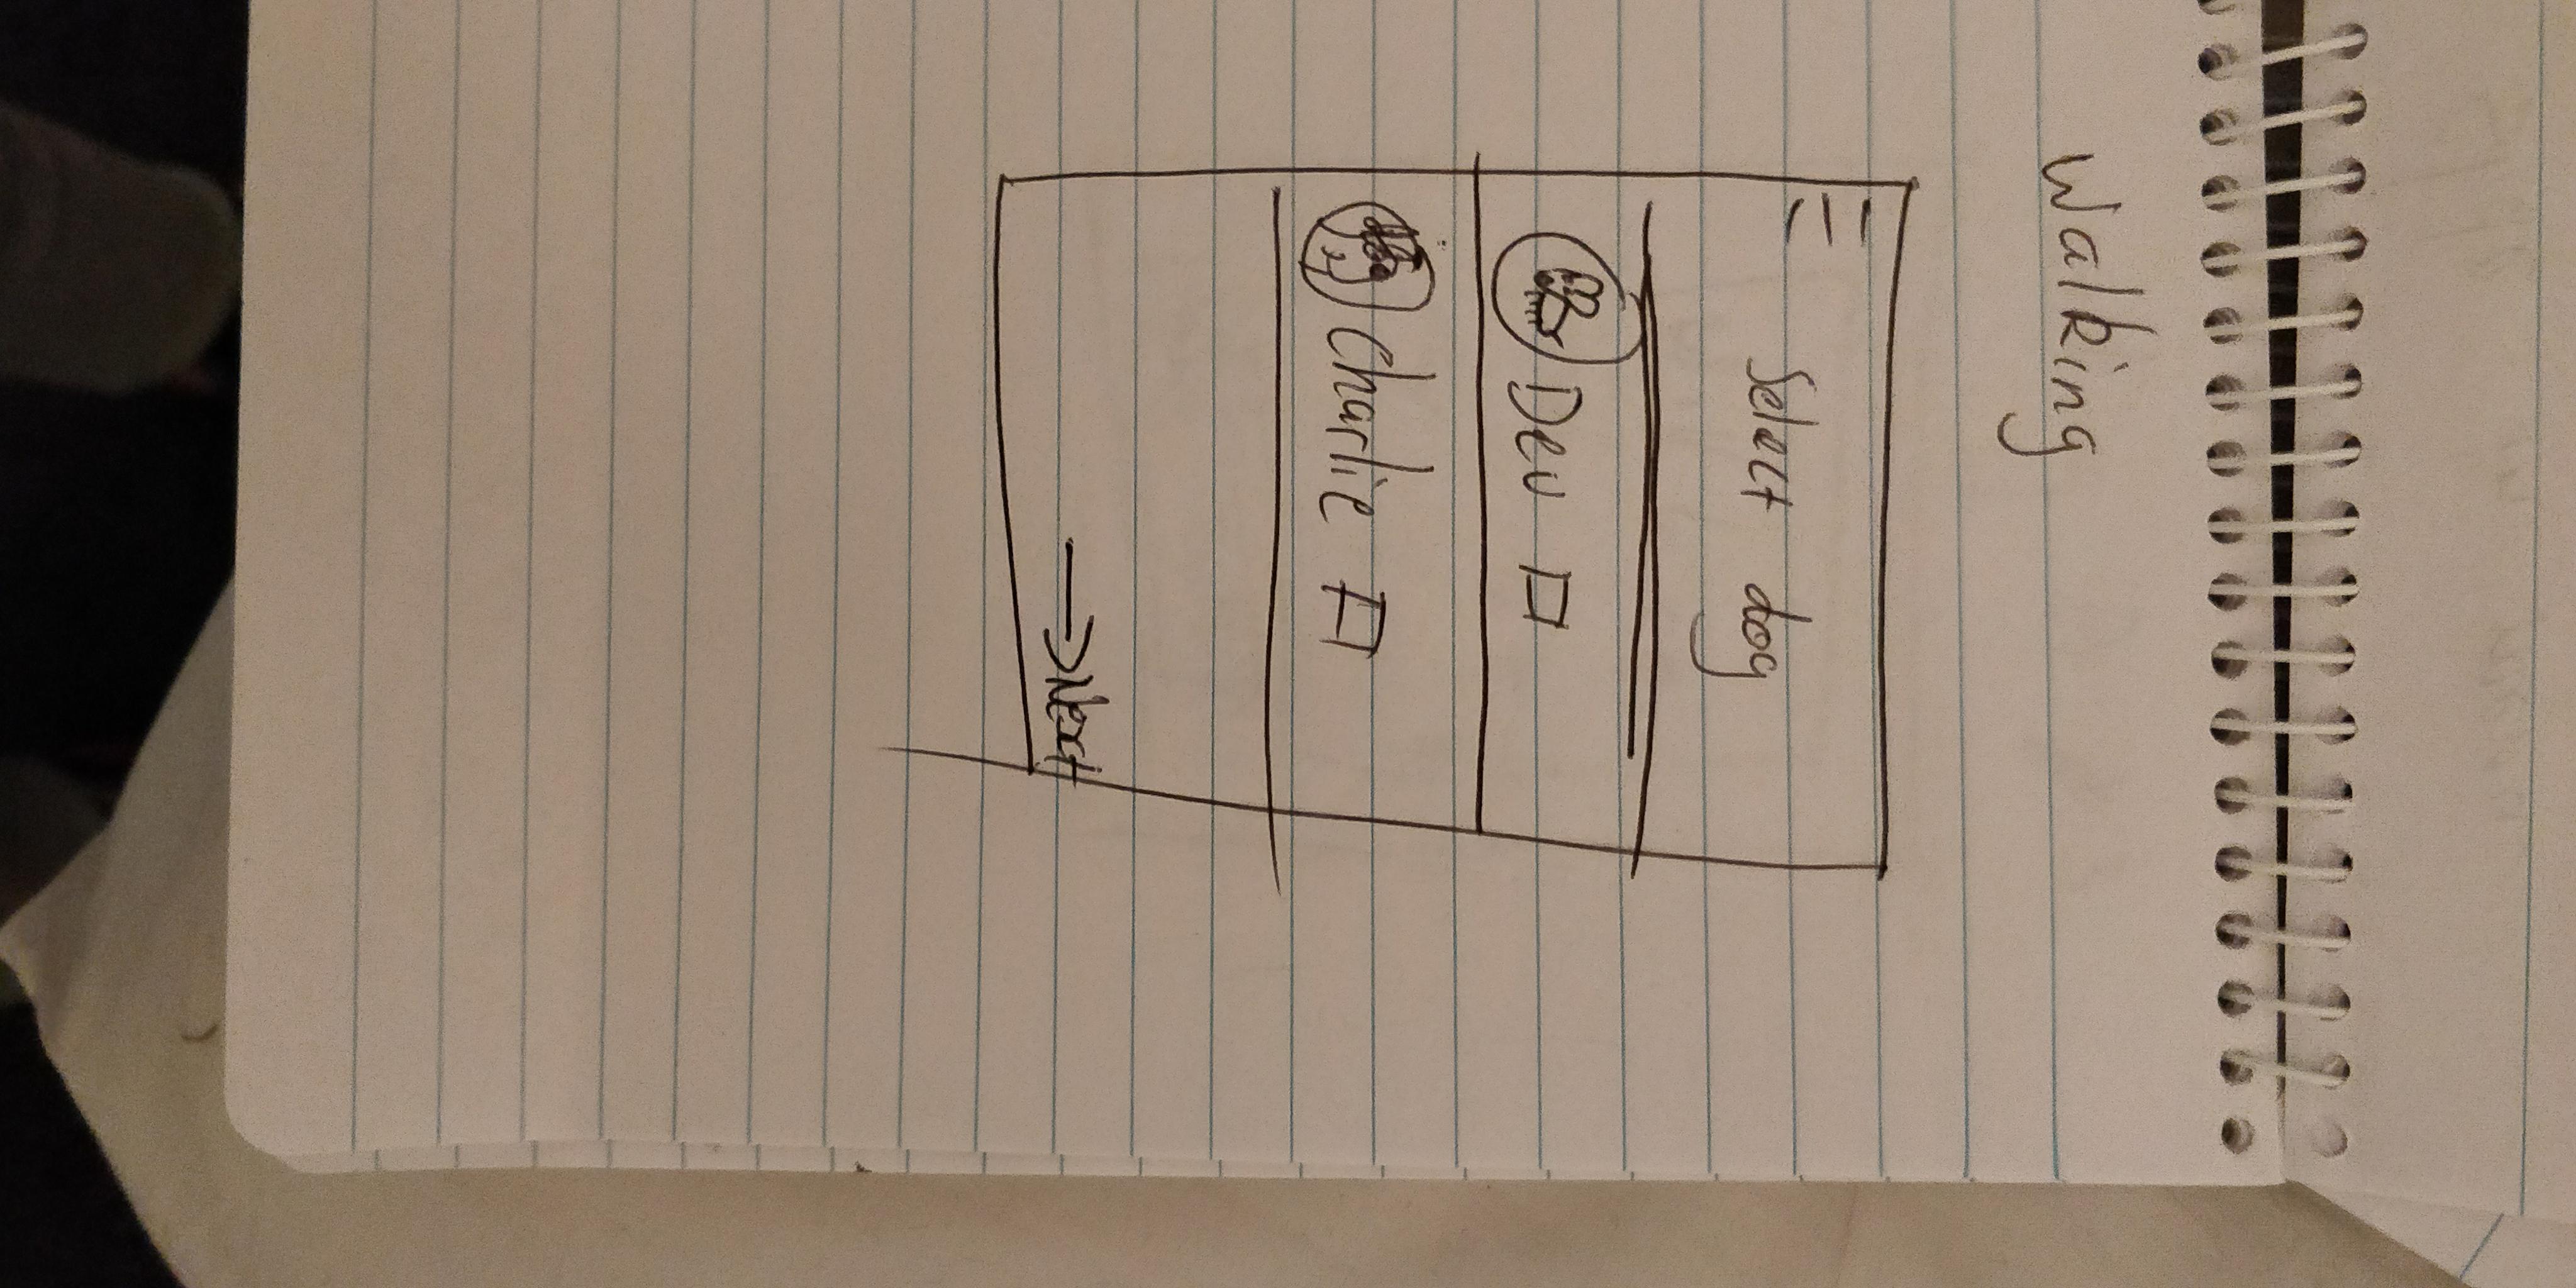 Walking
Select dog
Dev
Charlie
→Next